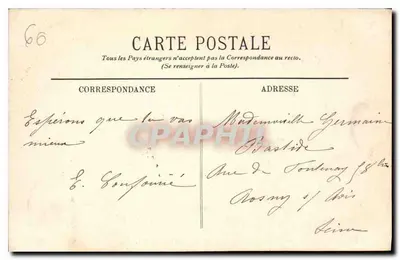 60
CARTE POSTALE
Tous les Pays étrangers n'acceptent pas la Correspondance au recto.
(Se renseigner à la Poste).
CORRESPONDANCE
ADRESSE
Espérons que tu vas
mieux
E.
Mademoiselle Germaine
Bastide
Rue de Fontenay 58 bis
Rosny s/ Bois
Seine
CPAPHIL